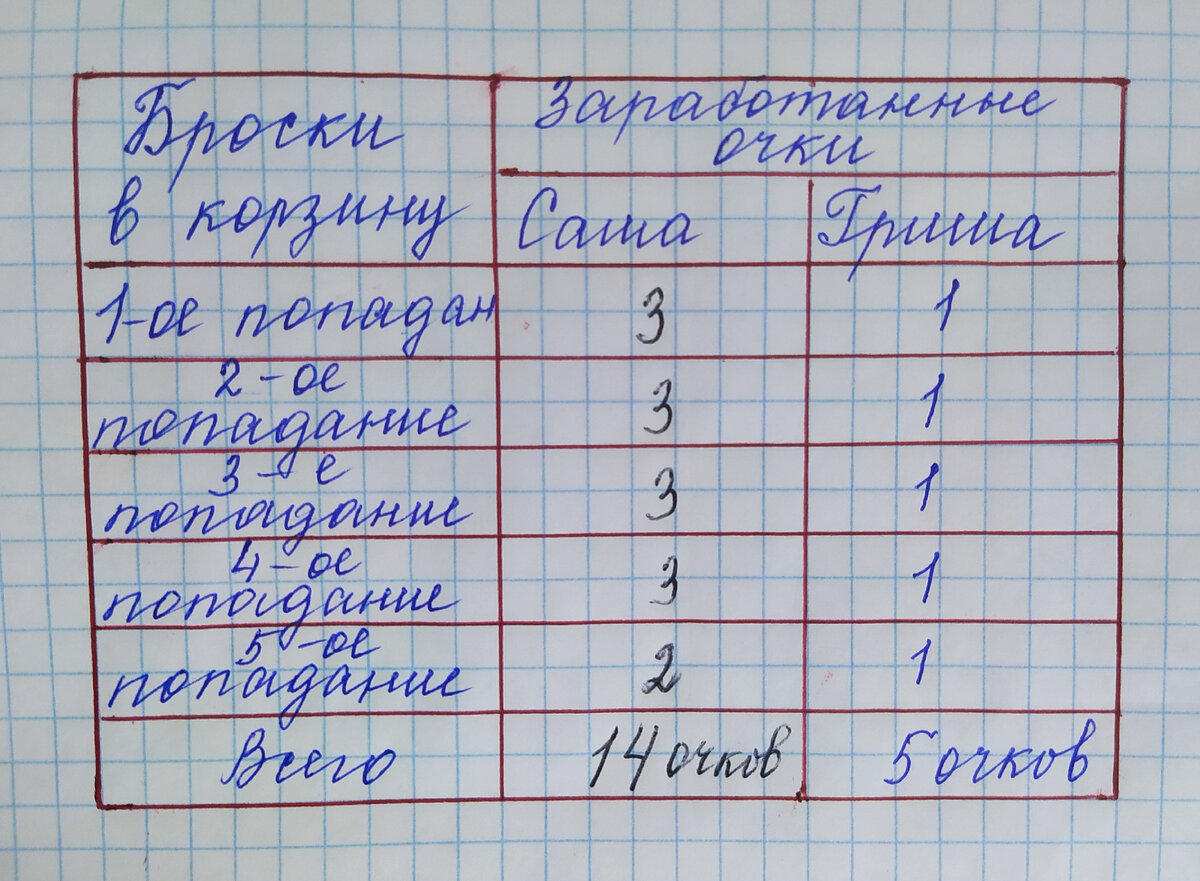 Броски
в корзину
Заработанные
очки
Саша
Гриша
1-ое попадан
3
1
2-ое
попадание
3
1
3-е
попадание
3
1
4-ое
попадание
3
1
5-ое
попадание
2
1
Всего
14 очков
5 очков